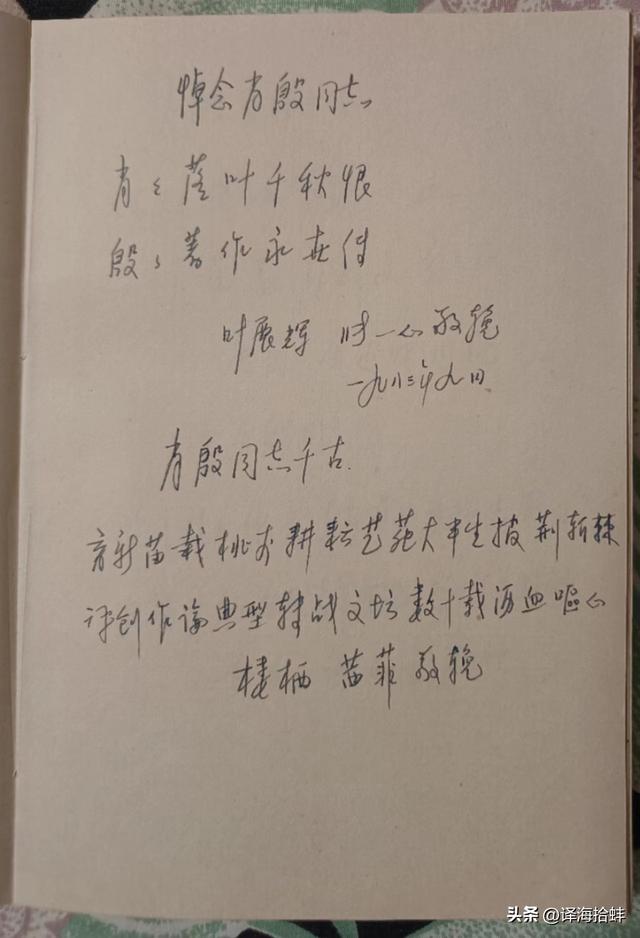 悼念肖殷同志
肖〻落叶千秋恨
殷〻著作永在传
叶展辉 时一心敬挽
一九八三年九月
肖殷同志千古.
育新苗栽桃李耕耘艺苑大半生披荆斩棘
评创作论典型转战文坛数十载沥血呕心
楼栖 茵菲敬挽
头条 @译海拾蚌